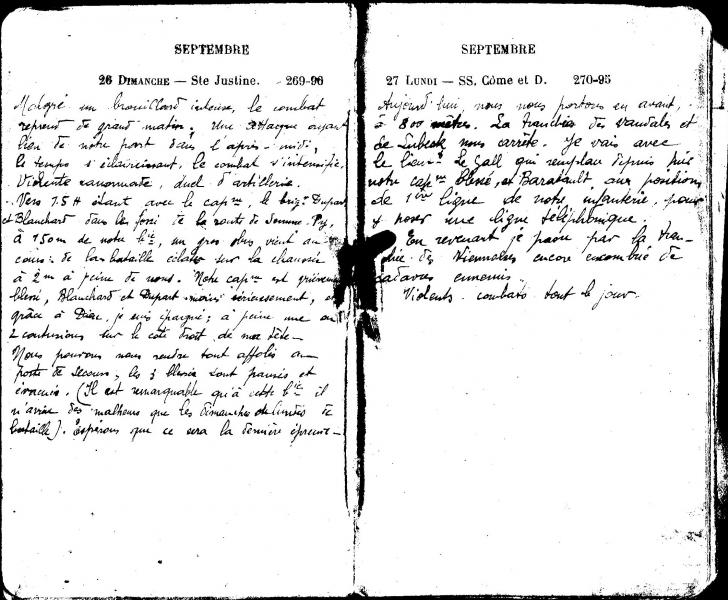 SEPTEMBRE
26 DIMANCHE — Ste Justine. 269-96
Malgré un brouillard intense, le combat
reprend de grand matin; une attaque ayant
lieu de notre part dans l'après-midi,
le temps s'éclaircissant, le combat s'intensifie.
Violente canonnade, duel d'artillerie.
Vers 15H étant avec le capne, le brig. Dupart
et Blanchard dans le fossé de la route de Somme-Py,
à 150m de notre bie, un gros obus vient au
cours de la bataille éclater sur la chaussée
à 2m à peine de nous. Notre capne est grièvement
blessé, Blanchard et Dupart moins sérieusement, et
grâce à Dieu, je suis épargné; à peine une ou
2 contusions sur le côté droit de ma tête —
Nous pouvons nous rendre tout affolés au
poste de secours, les 3 blessés sont pansés et
évacués. (Il est remarquable qu'à cette bie il
n'arrive des malheurs que les dimanches de
bataille). Espérons que ce sera la dernière épreuve —
SEPTEMBRE
27 LUNDI — SS. Côme et D. 270-95
Aujourd'hui, nous nous portons en avant,
à 800 mètres. La tranchée des Vandales et
de Lubeck nous arrête. Je vais avec
le lieut Le Gall qui remplace depuis hier
notre capne blessé, et Baratault, aux positions
de 1ère ligne de notre infanterie, pour
y poser une ligne téléphonique.
En revenant je passe par la tran-
chée des Viennoises encore encombrée de
cadavres ennemis.
Violents combats tout le jour.